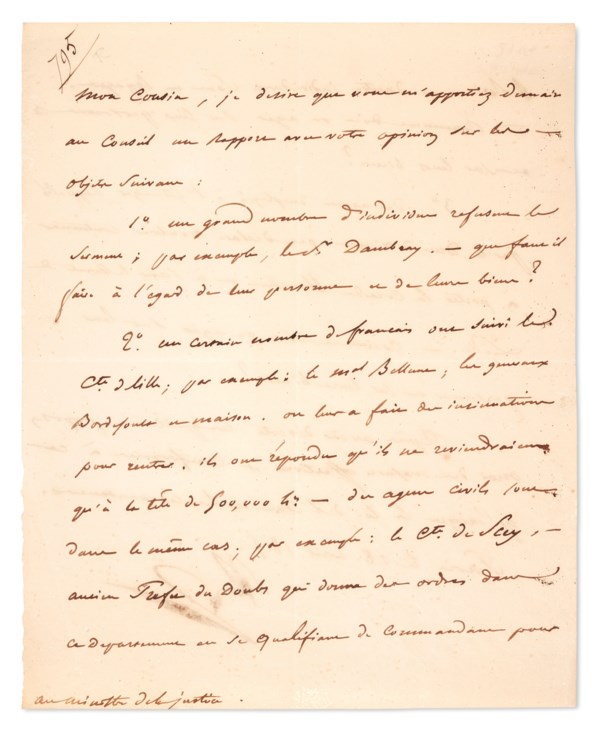 795
Mon Cousin, je desire que vous m'apportiez demain
au Conseil un Rapport avec votre opinion sur les
objets suivans :
1º. un grand nombre d'individus refusent le
serment ; par exemple, le Sr. Dambray. — que faut il
faire à l'égard de leur personne et de leurs biens ?
2º. un certain nombre de français ont suivi le
Cte. de lille ; par exemple : le mal Bellune ; les generaux
Bordesoult et maison. on leur a fait des insinuations
pour rentrer. ils ont répondu qu'ils ne reviendraient
qu'à la tête de 500,000 hes — des agens civils sont
dans le même cas ; par exemple : le Cte. de Scey, —
ancien Prefet du Doubs qui donne des ordres dans
ce Departement en se qualifiant de Commandant pour
au ministre de la justice .